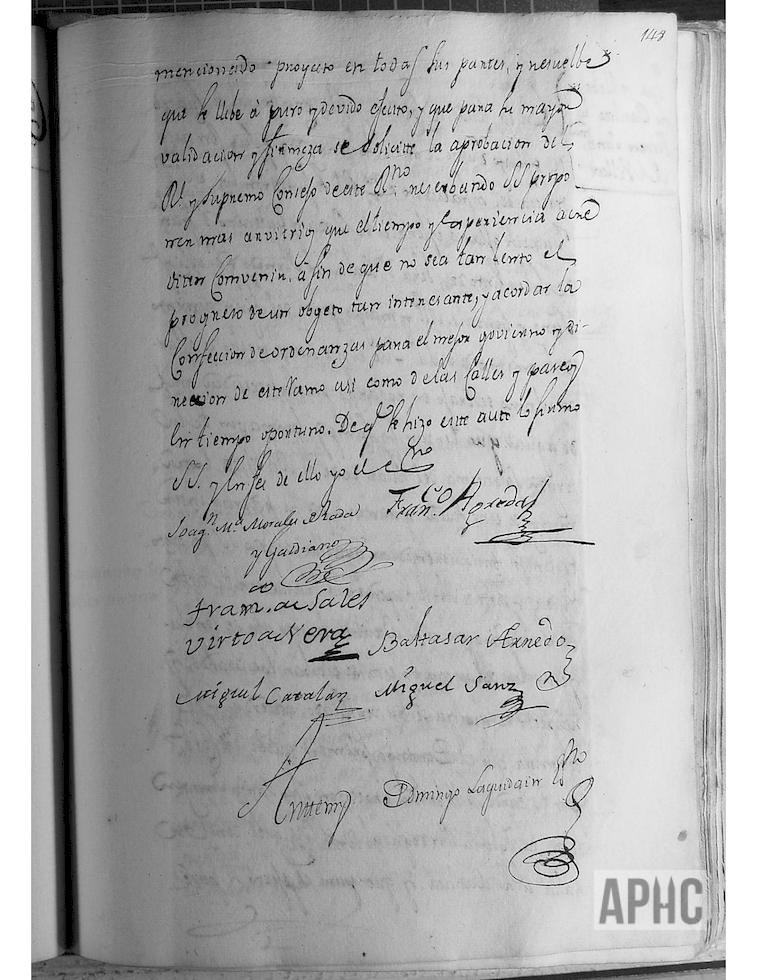 148
mencionado proyecto en todas sus partes, y resuelbe
que se llebe à puro y devido efecto, y que para su mayor
validacion y firmeza se solicite la aprobacion del
Rl. y Supremo Consejo de este Rno. reserbando SS. propo
ner mas arvitrios que el tiempo y la esperiencia acre
diten Convenir, à fin de que no sea tan lento el
progreso de un obgeto tan interesante, y acordar la
Confeccion de ordenanzas para el mejor govierno y di-
reccion de este Ramo asi como de las Calles y paseos
en tiempo oportuno. De q.e se hizo este auto lo firmo
SS. y en fee de ello yo el Sno
Joaqn. Ma. Morales de Rada
y Gaidiano
Franco. Agreda
Franco. de Sales
Virto de Vera
Baltasar Arnedo
Miguel Catalan
Miguel Sanz
Ante mi
Domingo Laquidain Sno
APHC